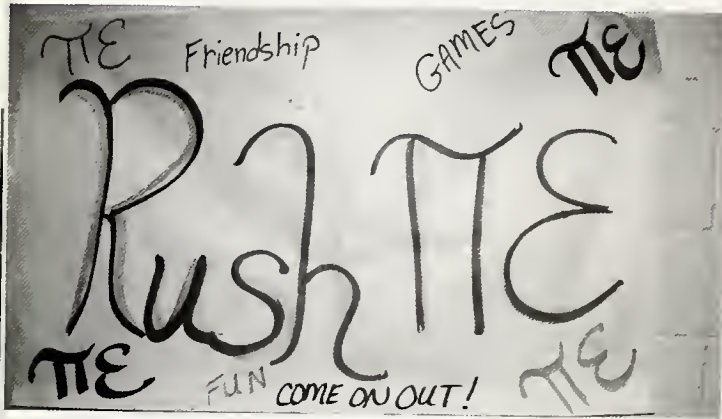 πε Friendship GAMES πε
Rush πε
πε FUN COME ON OUT! πε